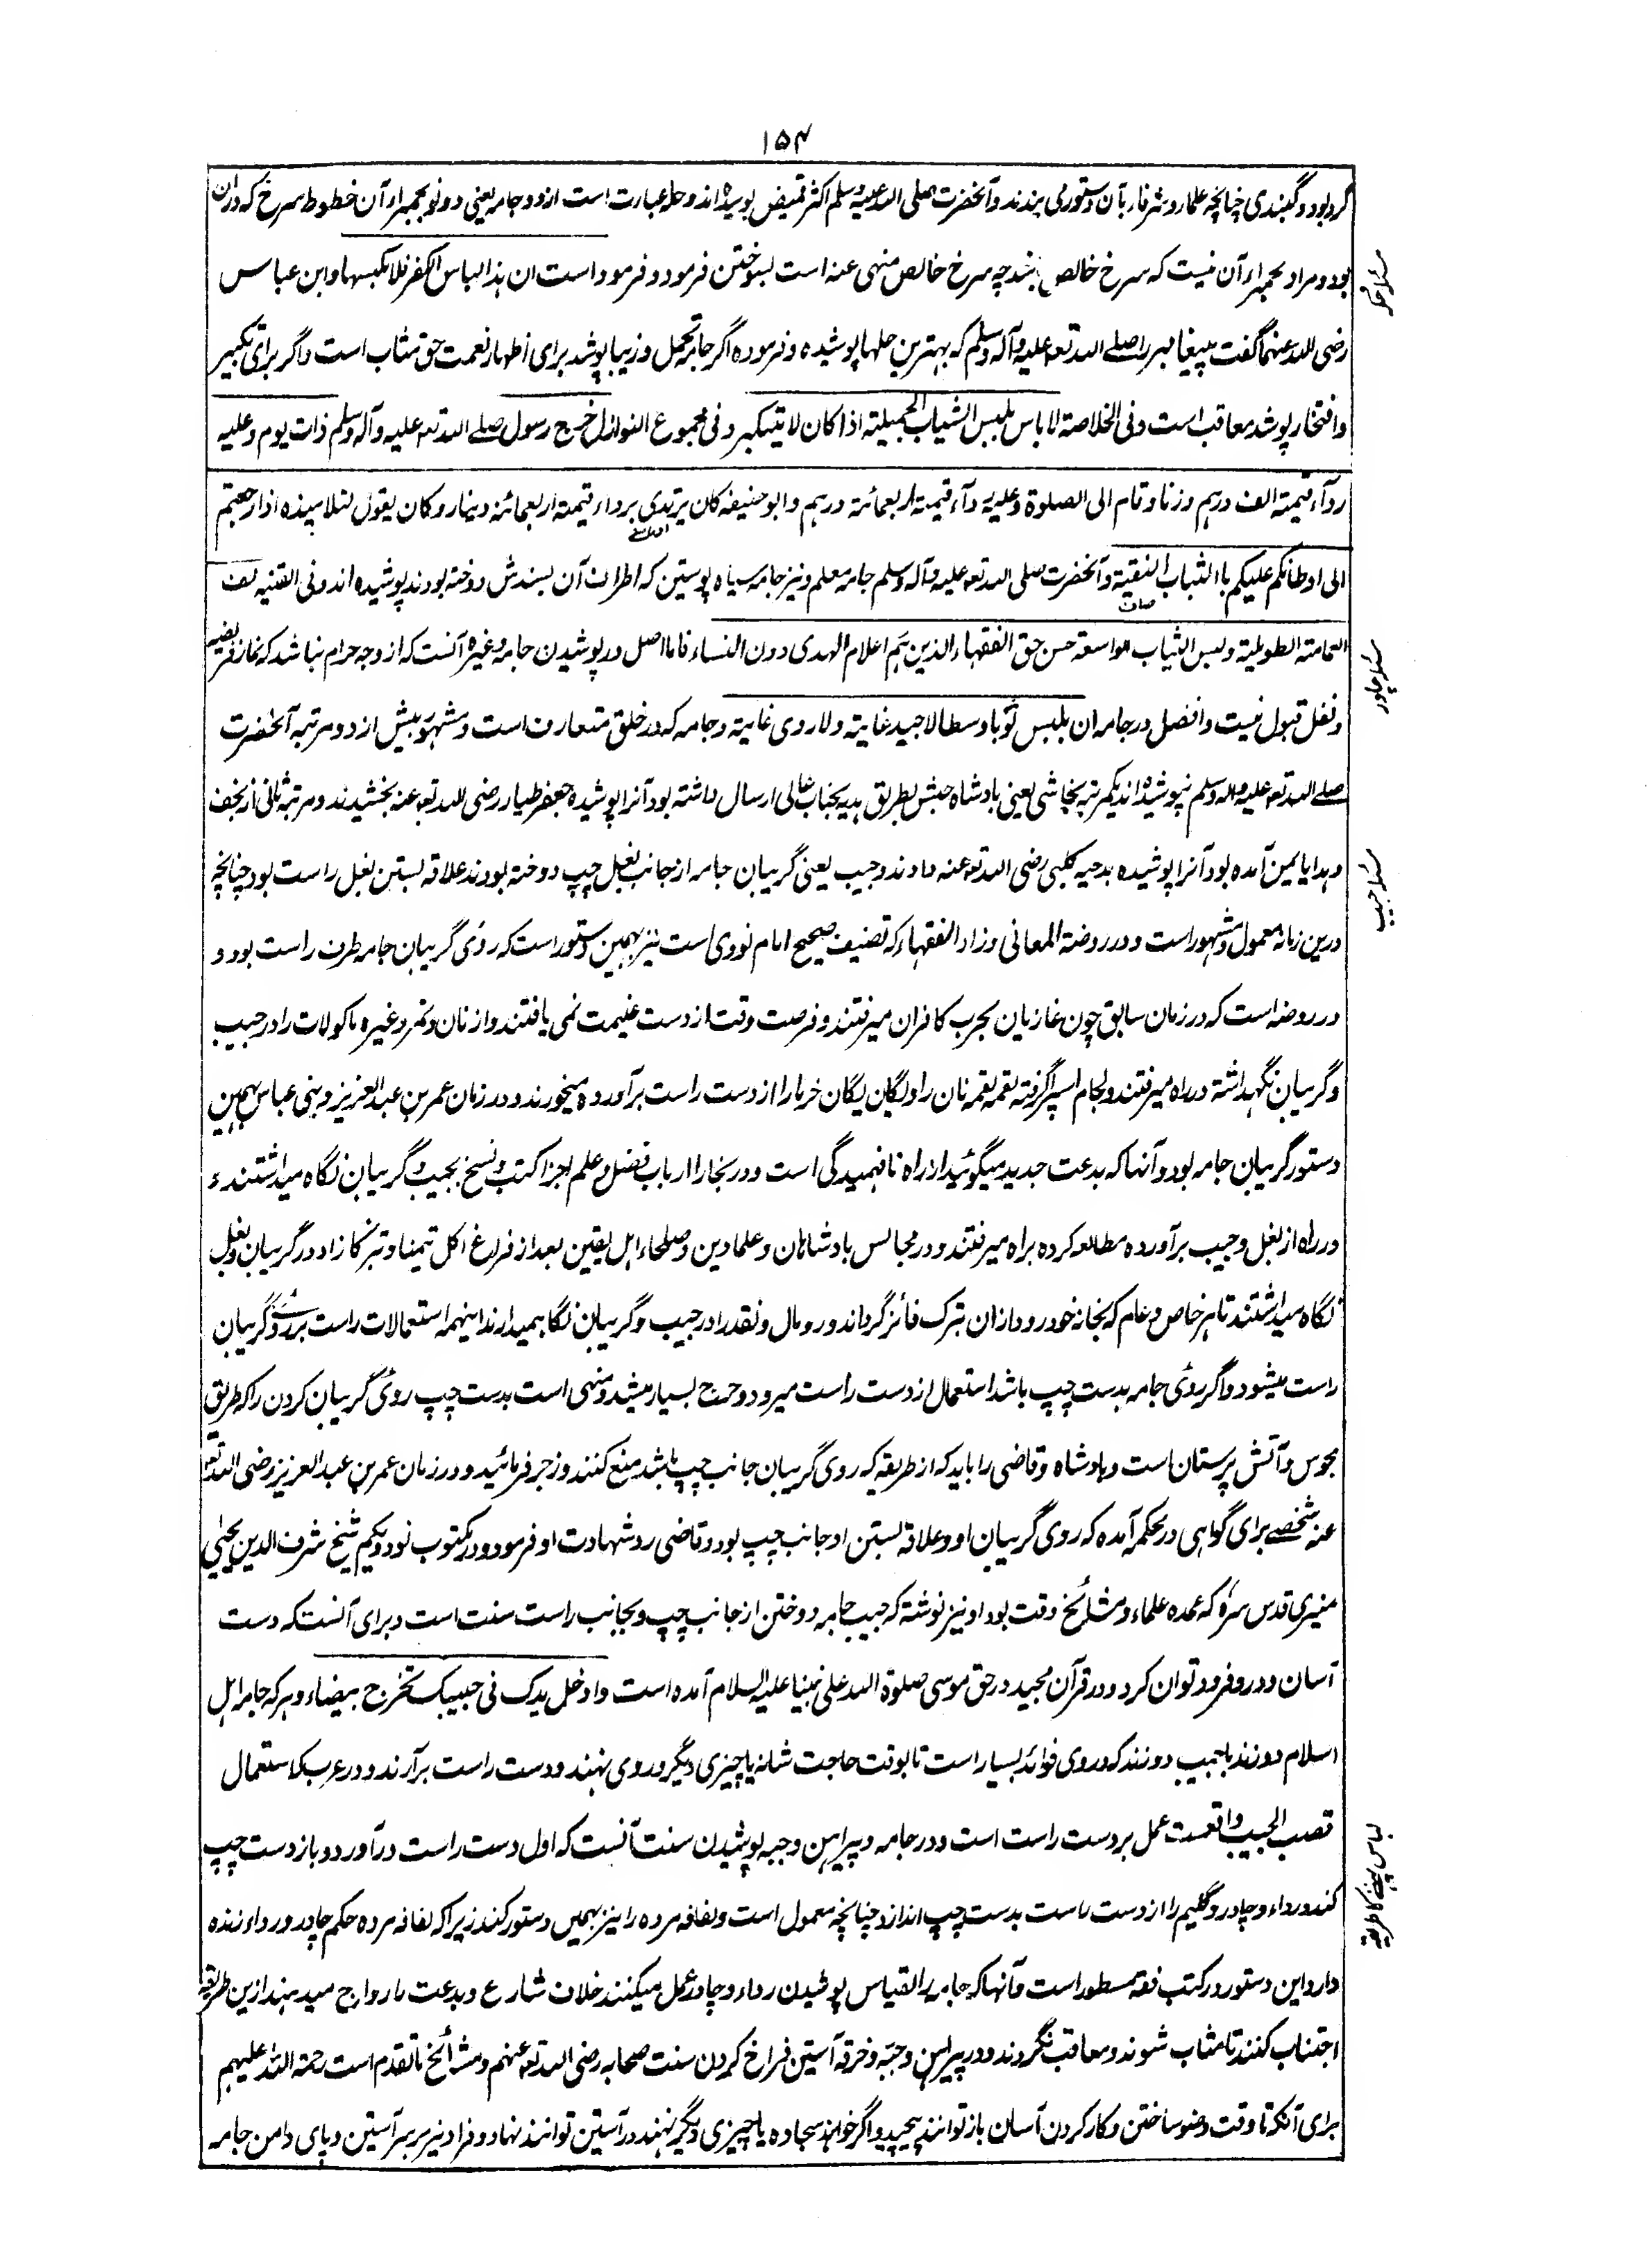 ۱۵۴
گرد بود و گنبدی چنانچه علما و شرفا بآن دستور می بندند و آنحضرت صلی الله علیه وسلم اکثر قمیص پوشیده اند و حله عبارت است از دو جامه یعنی دو ثوب حمرا و آن خطوط سرخ که در آن
بود و مراد بحمرا آن نیست که سرخ خالص بندچه سرخ خالص منهی عنه است بسوختن فرمود و فرموده است ان هذا لباس الکفر فلا تلبسها و ابن عباس
رضی الله عنهما گفت پیغامبر را صلے الله تعه علیه وآله وسلم که بهترین حلها پوشیده و فرموده اگر جامه تجمل و زیبا پوشد برای اظهار نعمت حق مثاب است و اگر برای تکبر
وافتخار پوشد معاقب است وفی الخلاصة لا باس بلبس الثیاب الجمیلة اذا کان لا یتکبر و فی مجموع النوازل خرج رسول صلے الله تعه علیه وآله وسلم ذات یوم و علیه
ردآء قیمته الف درهم وزنا وقام الی الصلوة وعلیه ردآء قیمته اربعمائة درهم و ابو حنیفه کان یرتدی برداء قیمته اربعمائة دینار و کان یقول لتلامیذه اذا رجعتم
الی اوطانکم علیکم با الثیاب النقیة و آنحضرت صلی الله تعه علیه وآله وسلم جامه معلم و نیز جامه سیاه پوستین که اطراف آن بسندش دوخته بودند پوشیده اند و فی القنیه لف
العمامة الطویلة و لبس الثیاب الواسعة حسن حق الفقهاء الذین هم اعلام الهدی دون النساء فاما اصل در پوشیدن جامه وغیره آنست که از وجه حرام نباشد که نماز فریضه
و نفل قبول نیست و افضل در جامه ان یلبس ثوبا وسطا لا جید غایة ولا ردی غایة و جامه که در خلق متعارف است و مشهور بیش از دو مرتبه آنحضرت
صلے الله تعه علیه وآله وسلم نپوشیده اند یکمرتبه نجاشی یعنی بادشاه حبش بطریق هدیه بجناب عالی ارسال داشته بود آنرا پوشیده جعفر طیار رضی الله تعه عنه بخشیدند و مرتبه ثانی از تحف
و هدایا یمن آمده بود آنرا پوشیده بدحیه کلبی رضی الله تعه عنه دادند و جیب یعنی گریبان جامه از جانب بغل چپ دوخته بودند علاقه بستن بغل راست بود چنانچه
درین زمانه معمول و مشهور است و در روضة المعانی و زاد الفقهاء که تصنیف صحیح امام نووی است نیز بهمین دستور است که روی گریبان جامه طرف راست بود و
در روضه است که در زمان سابق چون غازیان بحرب کافران میرفتند و فرصت وقت از دست غنیمت نمی یافتند و از نان و تمر وغیره ماکولات را در جیب
و گریبان نگهداشته در راه میرفتند و لجام اسپ گرفته لقمه لقمه نان را و یگان یگان خرما را از دست راست برآورده میخورند و در زمان عمر بن عبد العزیز و بنی عباس بهمین
دستور گریبان جامه بود و آنها که بدعت جدید میگویند از راه نافهمیدگی است و در بخارا ارباب فضل و علم اجزا کتب و نسخ بجیب و گریبان نگاه میداشتند و
در راه از بغل و جیب برآورده مطالعه کرده براه میرفتند و در مجالس بادشاهان و علما دین و صلحاء اهل یقین بعد از فراغ اکل تیمنا و تبرکا زاد در گریبان و بغل
نگاه میداشتند تا هر خاص و عام که بخانه خود رود از ان تبرک فائز گرداند و رومال و نقد را در جیب و گریبان نگاهمیدارند اینهمه استعمالات راست بر روی گریبان
راست میشود و اگر روی جامه بدست چپ باشد استعمال از دست راست میرود و حرج بسیار میشد و منهی است بدست چپ روی گریبان کردن را که طریق
مجوس و آتش پرستان است و بادشاه و قاضی را باید که از طریقه که روی گریبان جانب چپ باشد منع کنند و زجر فرمائید و در زمان عمر بن عبد العزیز رضی الله تعه
عنه شخصے برای گواهی در محکمه آمده که روی گریبان او و علاقه بستن او جانب چپ بود و قاضی رد شهادت او فرمود و در مکتوب نود و یکم شیخ شرف الدین یحیٰی
منیری قدس سره که عمده علماء و مشائخ وقت بود او نیز نوشته که جیب جامه دوختن از جانب چپ و بجانب راست سنت است و برای آنست که دست
آسان و در و فرود توان کرد و در قرآن مجید در حق موسی صلوة الله علی نبینا علیه السلام آمده است وادخل یدک فی جیبک تخرج بیضاء و هر که جامه اهل
اسلام دوزند با جیب دوزند که در وی فوائد بسیار است تا بوقت حاجت شانه یا چیزی دیگر در وی نهند و دست راست برآرند و در عرب که استعمال
قصب الجیب واقعست عمل بر دست راست است و در جامه و پیراهن و جبه پوشیدن سنت آنست که اول دست راست در آورد و باز دست چپ
کند و رداء و چادر و گلیم را از دست راست بدست چپ اندازد چنانچه معمول است و لفافه مرده را نیز بهمین دستور کنند زیرا که لفافه مرده حکم چادر و رداء زنده
دارد این دستور در کتب فقه مسطور است و آنها که جامه را القیاس پوشیدن رداء و چادر عمل میکنند خلاف شارع و بدعت را رواج میدهند ازین طریقه
اجتناب کنند تا مثاب شوند و معاقب نگردند و در پیراهن و جبّه و خرقه آستین فراخ کردن سنت صحابه رضی الله تعه عنهم و مشائخ ماتقدم است رحمة الله علیهم
برای آنکه تا وقت وضو ساختن و کار کردن آسان باز توانند پیچید و اگر خواهند سجاده یا چیزی دیگر نهند در آستین توانند نهاد و فراویز بر سر آستین و پای دامن جامه
مسئله حله
مسئله چادر
مسئله جیب
لباس پہننے کا طریقہ